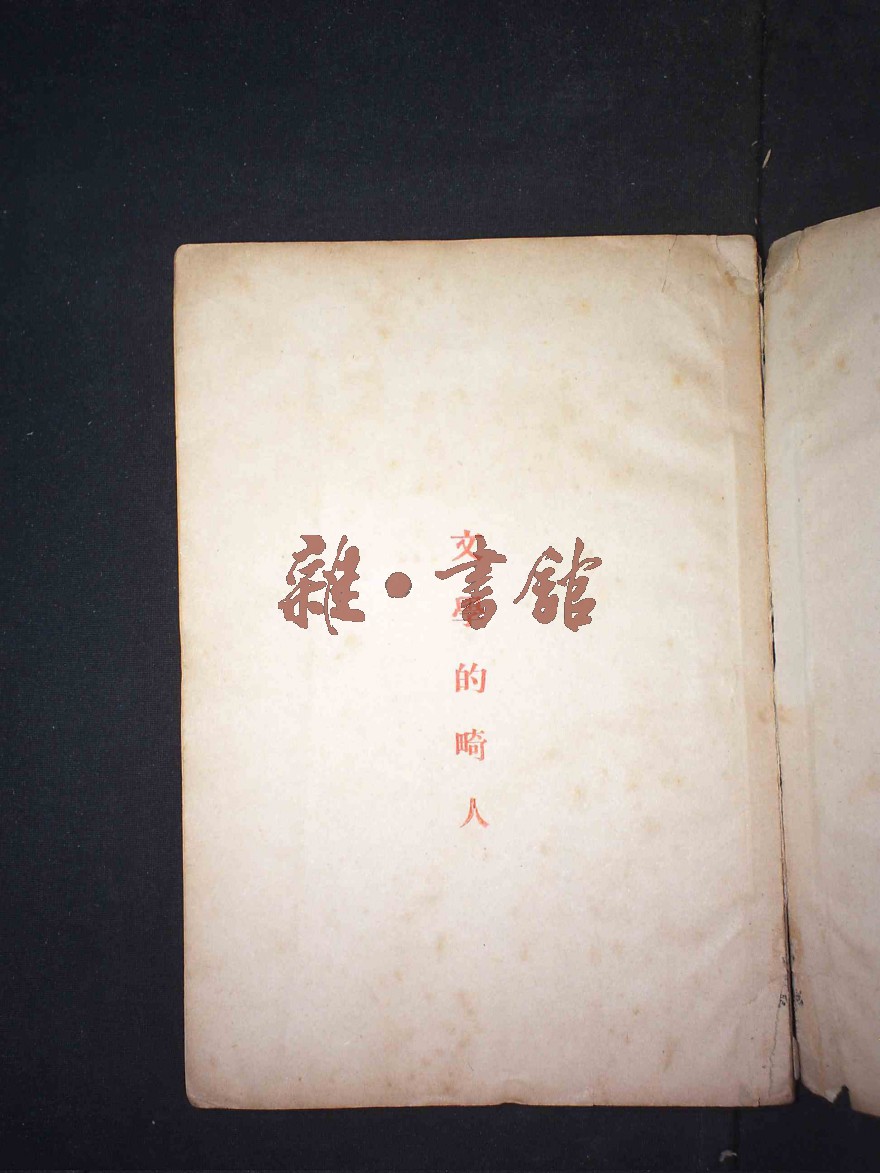 文學的畸人
雜·書館